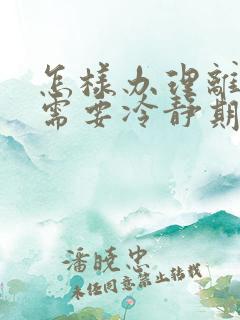 怎样办理離
需要冷静期
潘晓忠
未经同意禁止转载